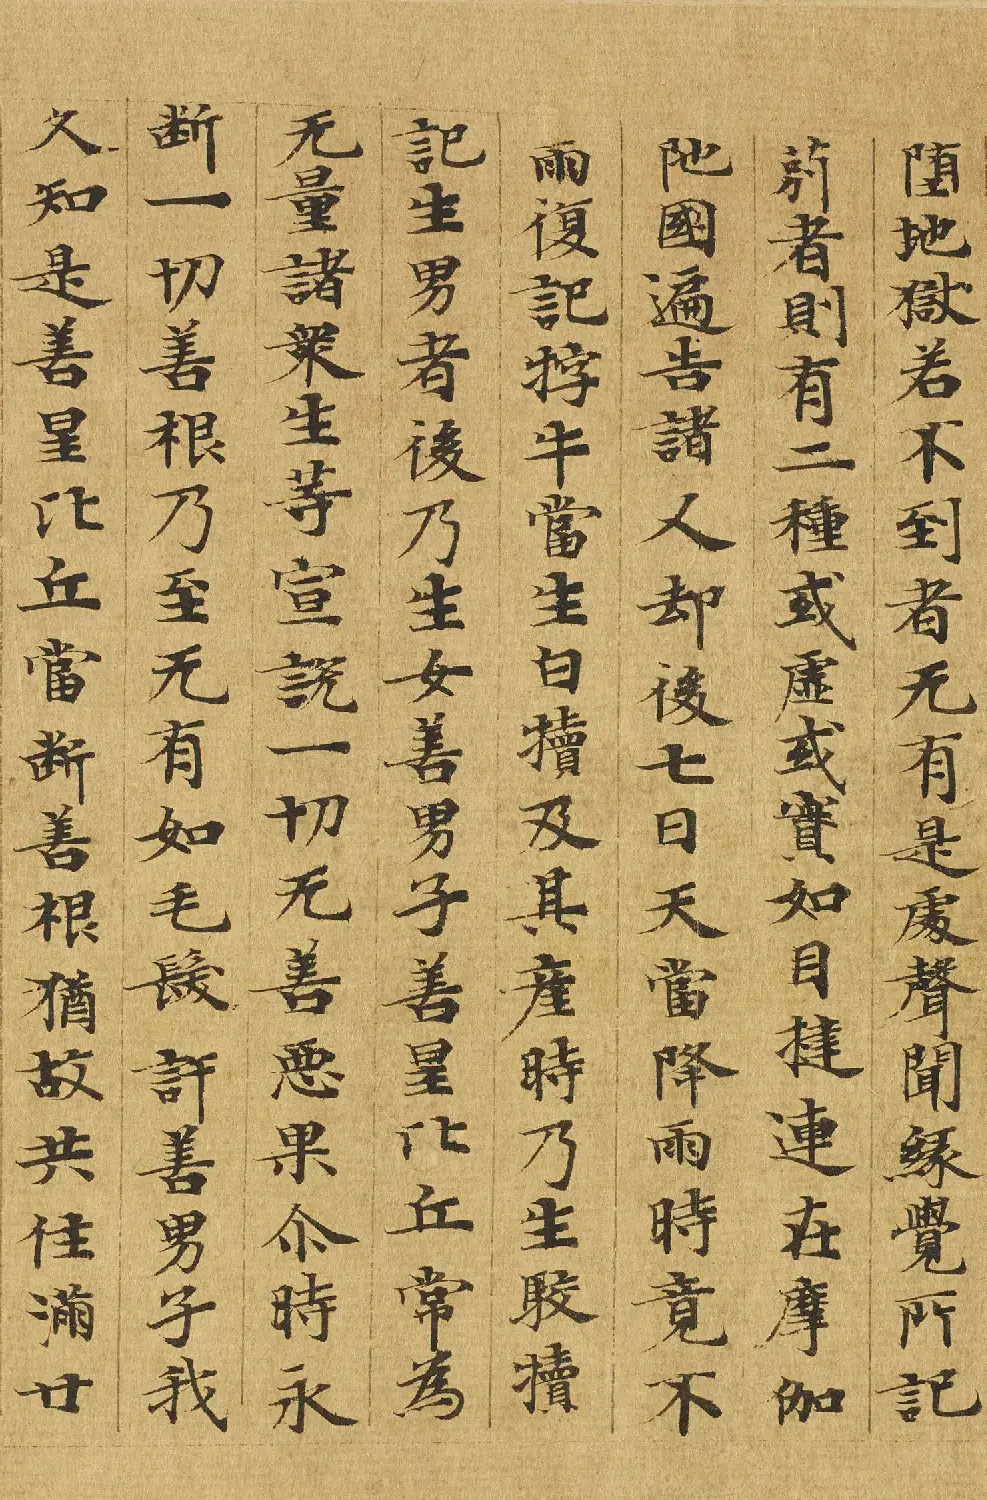 堕地獄若不到者无有是處聲聞緣覺所記
莂者則有二種或虛或實如目揵連在摩伽
陁國遍告諸人却後七日天當降雨時竟不
雨復記牸牛當生白犢及其產時乃生駮犢
記生男者後乃生女善男子善星比丘常為
无量諸衆生等宣說一切无善惡果尒時永
断一切善根乃至无有如毛髮許善男子我
久知是善星比丘當断善根猶故共住滿廿